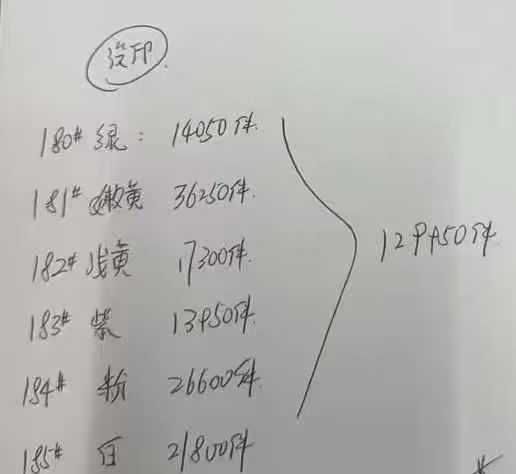 没印
180# 绿: 14050件
181# 嫩黄 36250件
182# 浅黄 17300件
129950件
183# 紫 13950件
184# 粉 26600件
185# 白 21800件